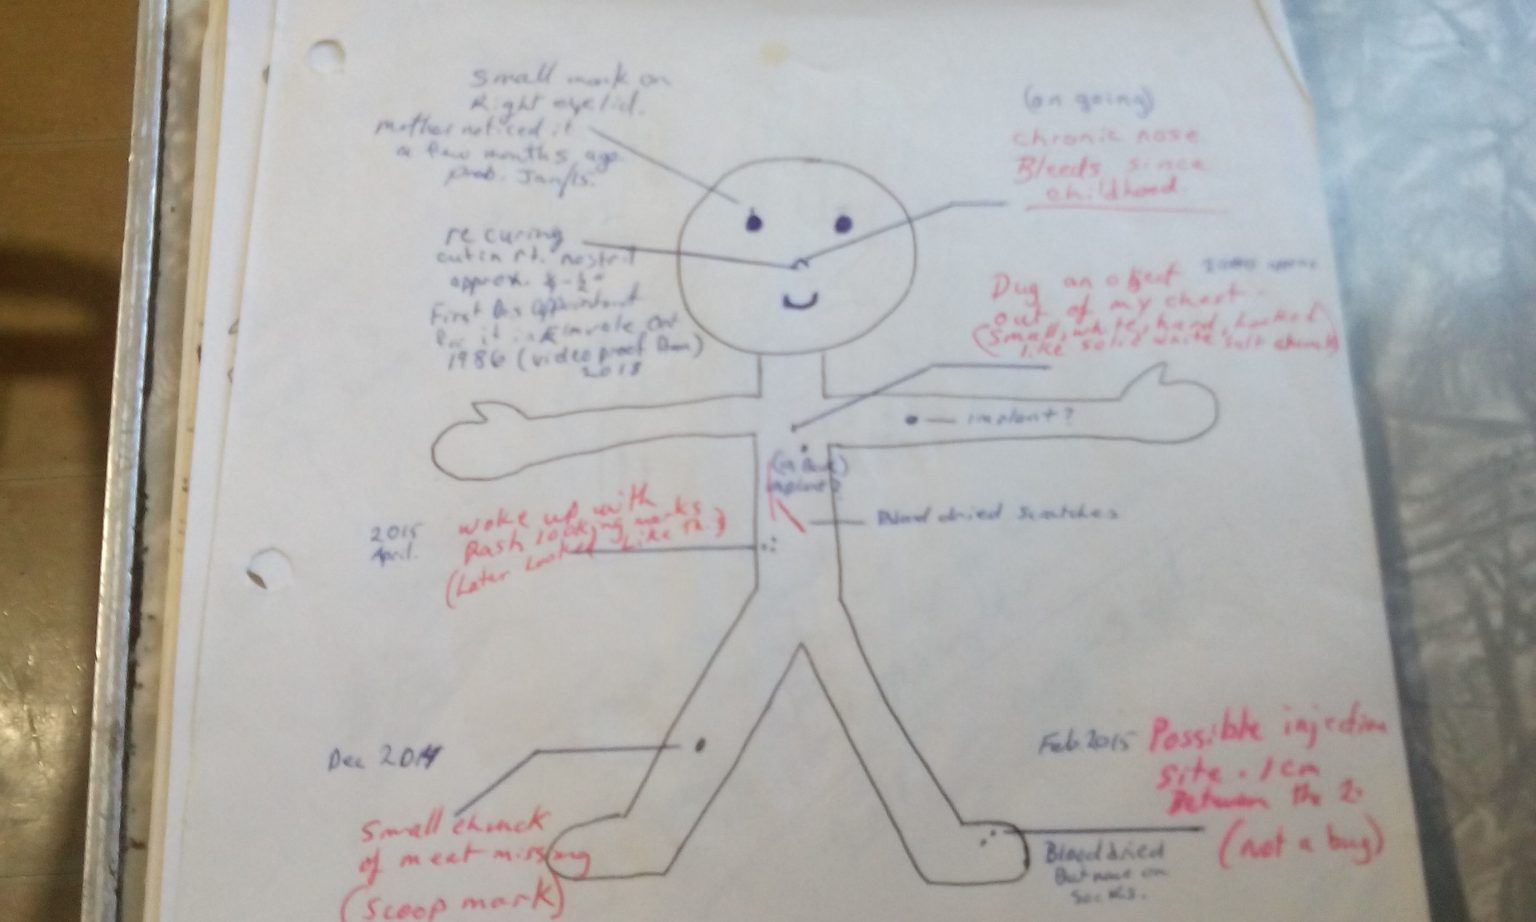 Small mark on
Right eyelid.
mother noticed it
a few months ago
prob. Jan/15.
(on going)
chronic nose
Bleeds since
childhood
re curing
cut in rt. nostril
approx.
First
it in
1986 (video proof
2018
Dug an object
out of my chest
(Small, white, hard, looked
like solid white salt chunk)
implant?
implant?
Blood dried scratches
2015
April.
woke up with
Rash looking marks
(Later looked like
Dec 2014
Small chunck
of meat missing
(Scoop mark)
Feb 2015 Possible injection
site. 1cm
Between the 2.
(not a bug)
Blood dried
But none on
socks.